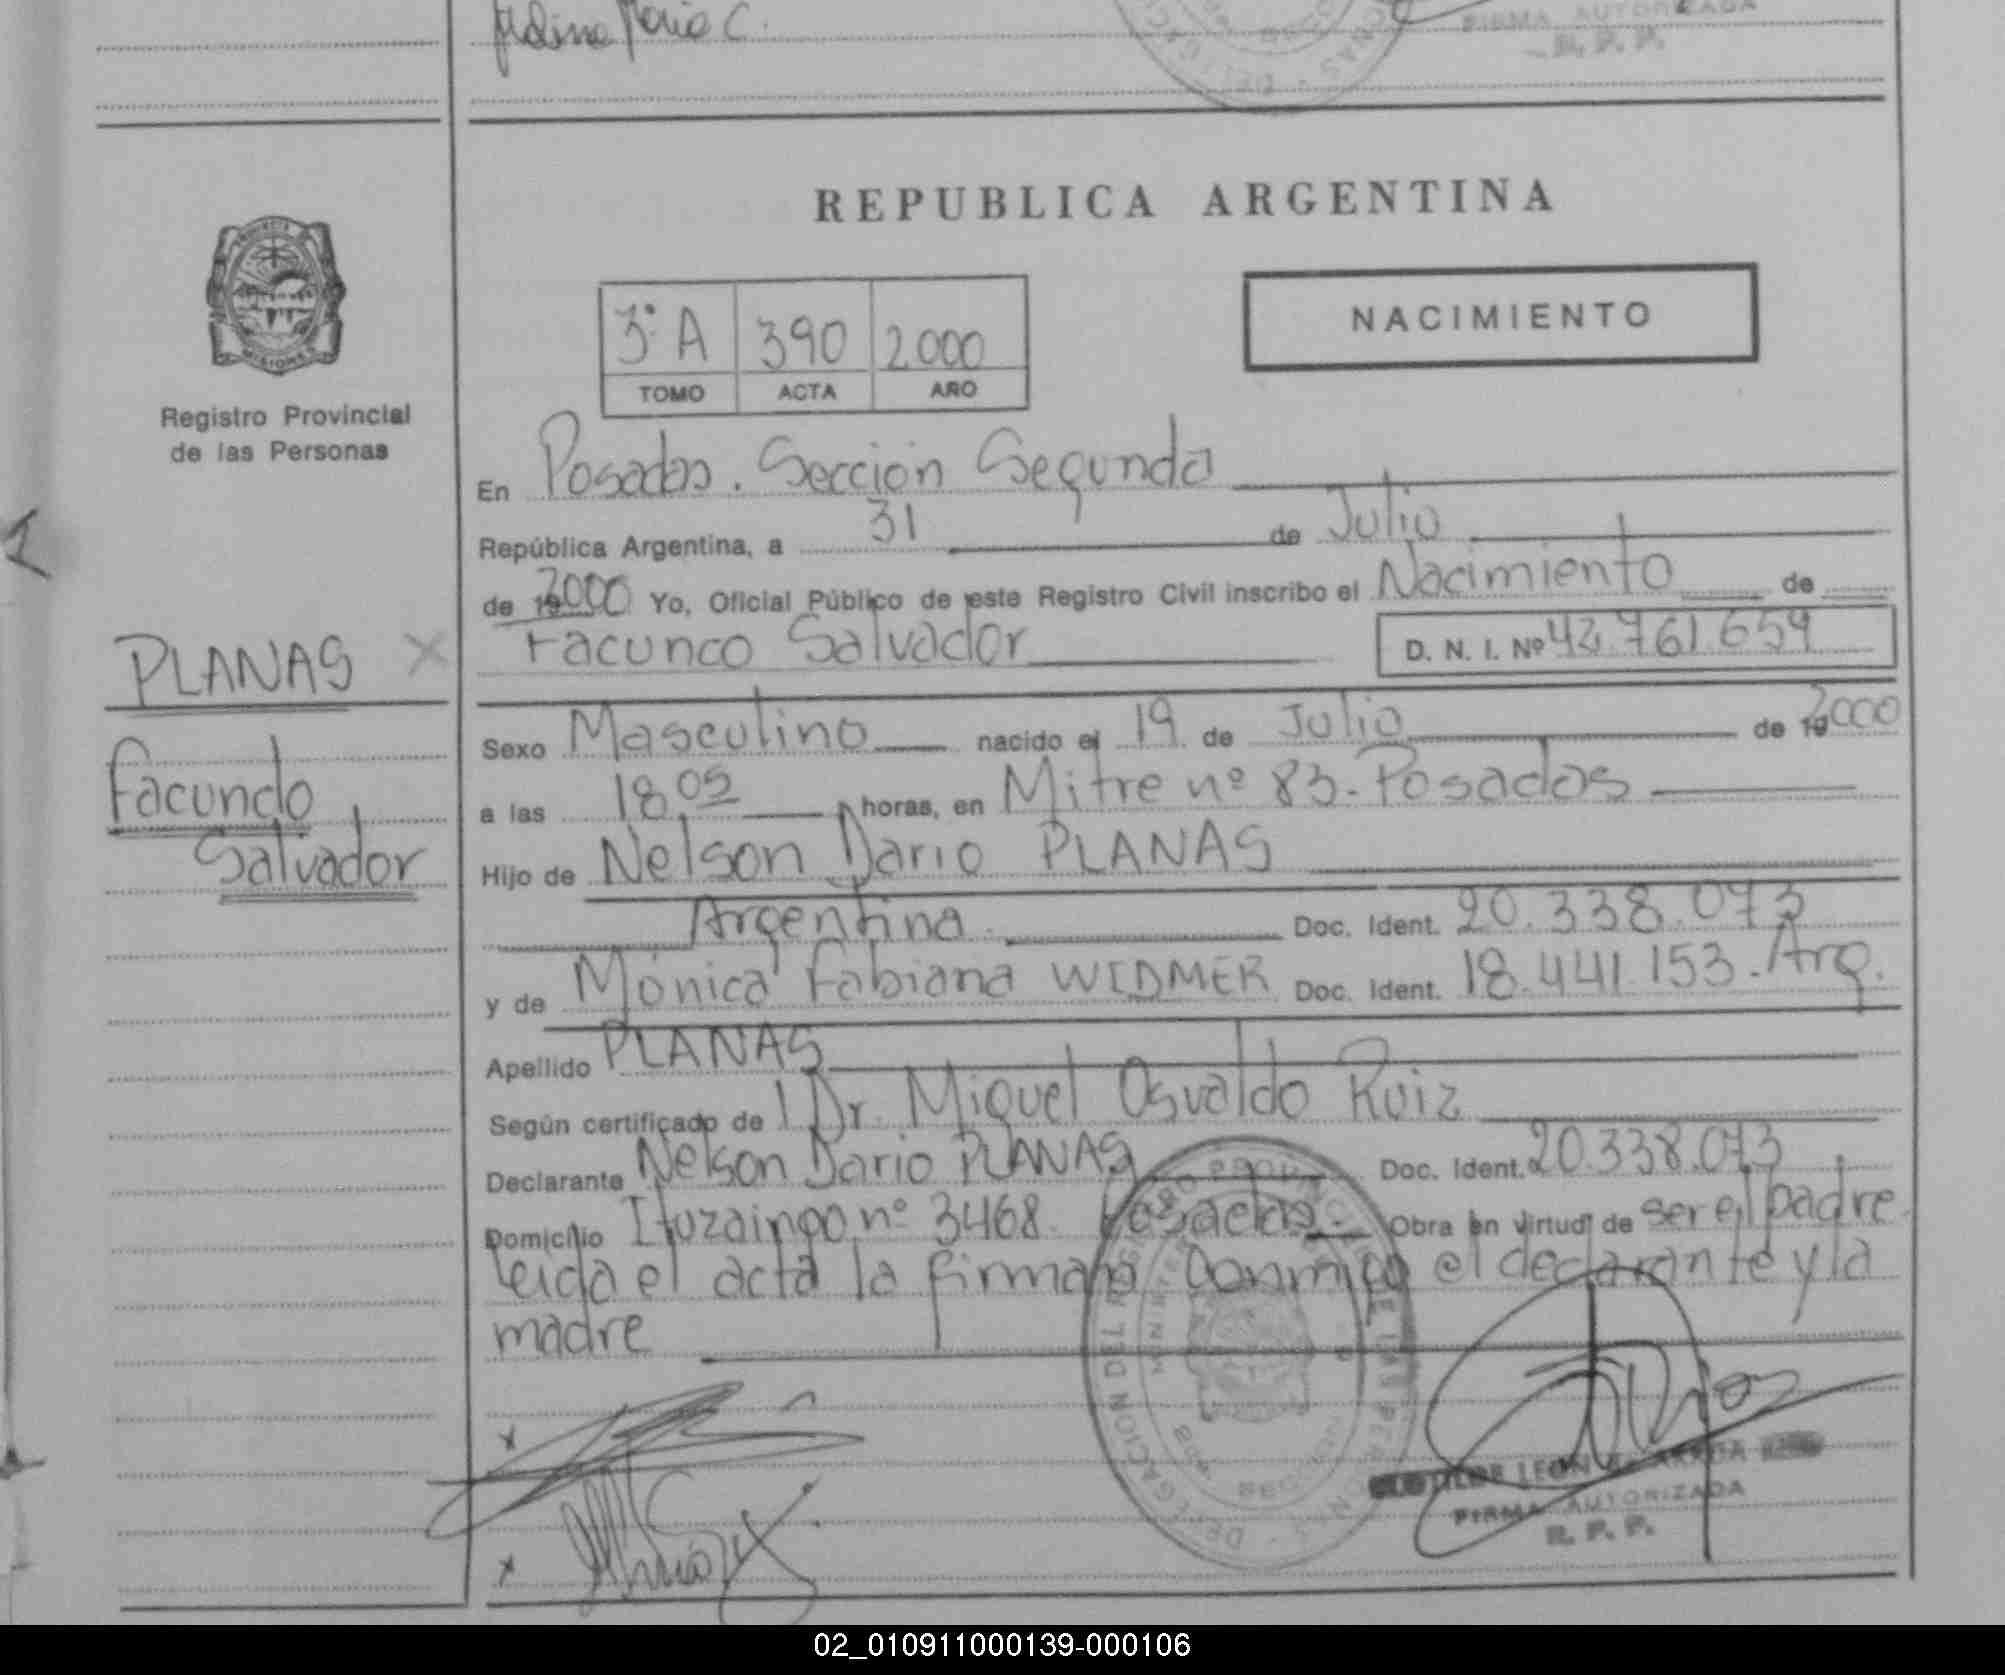 Maria C.
FIRMA AUTORIZADA
R. P. P.
REPUBLICA ARGENTINA
NACIMIENTO
3º A 390 2000
TOMO ACTA AÑO
Registro Provincial
de las Personas
En Posadas. Sección Segunda
República Argentina, a 31 de Julio
de 2000 Yo, Oficial Público de este Registro Civil inscribo el Nacimiento de
Facunco Salvador D. N. I. Nº 42.761.659
PLANAS X
Facundo
Salvador
Sexo Masculino nacido el 19 de Julio de 2000
a las 18.05 horas, en Mitre nº 83-Posadas
Hijo de Nelson Dario PLANAS
Argentina Doc. Ident. 20.338.073
y de Mónica Fabiana WIDMER Doc. Ident. 18.441.153-Arg.
Apellido PLANAS
Según certificado de Dr. Miguel Osvaldo Ruiz
Declarante Nelson Dario PLANAS Doc. Ident. 20.338.073
Domicilio Ituzaingo nº 3468. Posadas. Obra en virtud de ser el padre
leida el acta la firman conmigo el declarante y la
madre
DELEGACION DEL REGISTRO PROVINCIAL DE LAS PERSONAS
LEON
FIRMA AUTORIZADA
R. P. P.
02_010911000139-000106